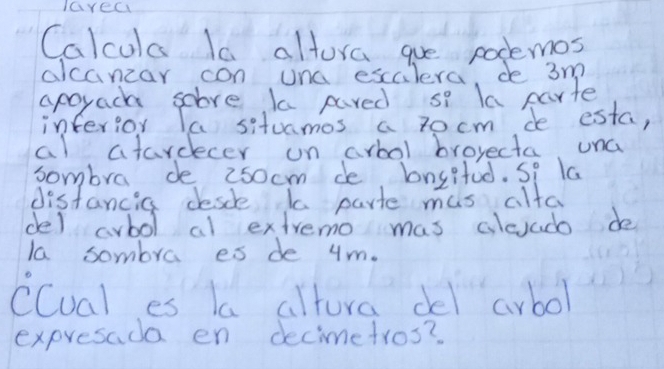 Tarea
Calcula la altura que podemos
alcanzar con una escalera de 3m
apoyada sobre la pared si la parte
inferior la situamos a 70 cm de esta,
al atardecer un arbol broyecta una
sombra de 250cm de longitud. Si la
distancia desde la parte mas alta
del arbol al extremo mas alejado de
la sombra es de 4m.
¿Cual es la altura del arbol
expresada en decimetros?